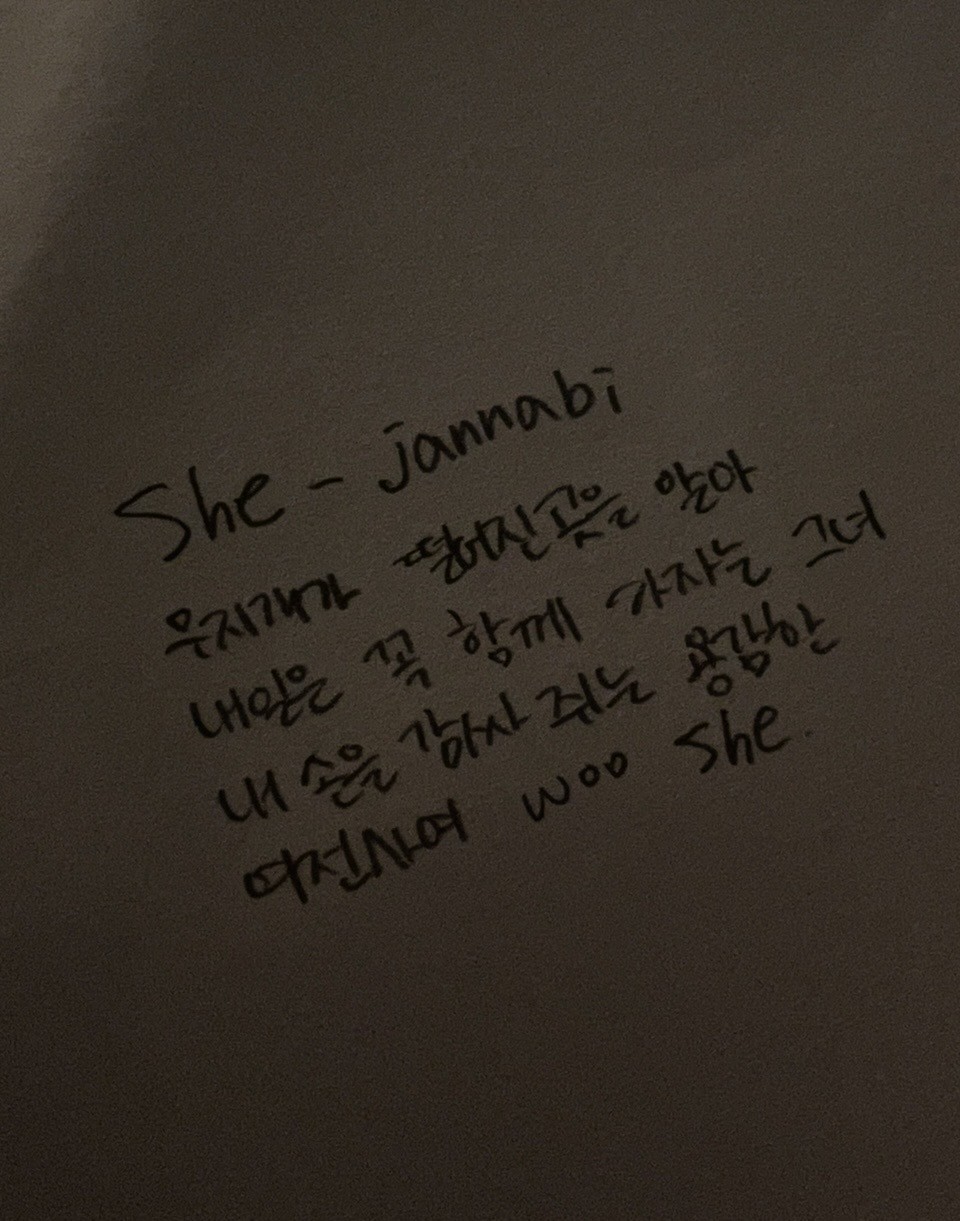 She - jannabi
무지개가 떨어진 곳을 알아
내일은 꼭 함께 가자는 그녀
내 손을 감싸 쥐는 용감한
여전사여 woo she.